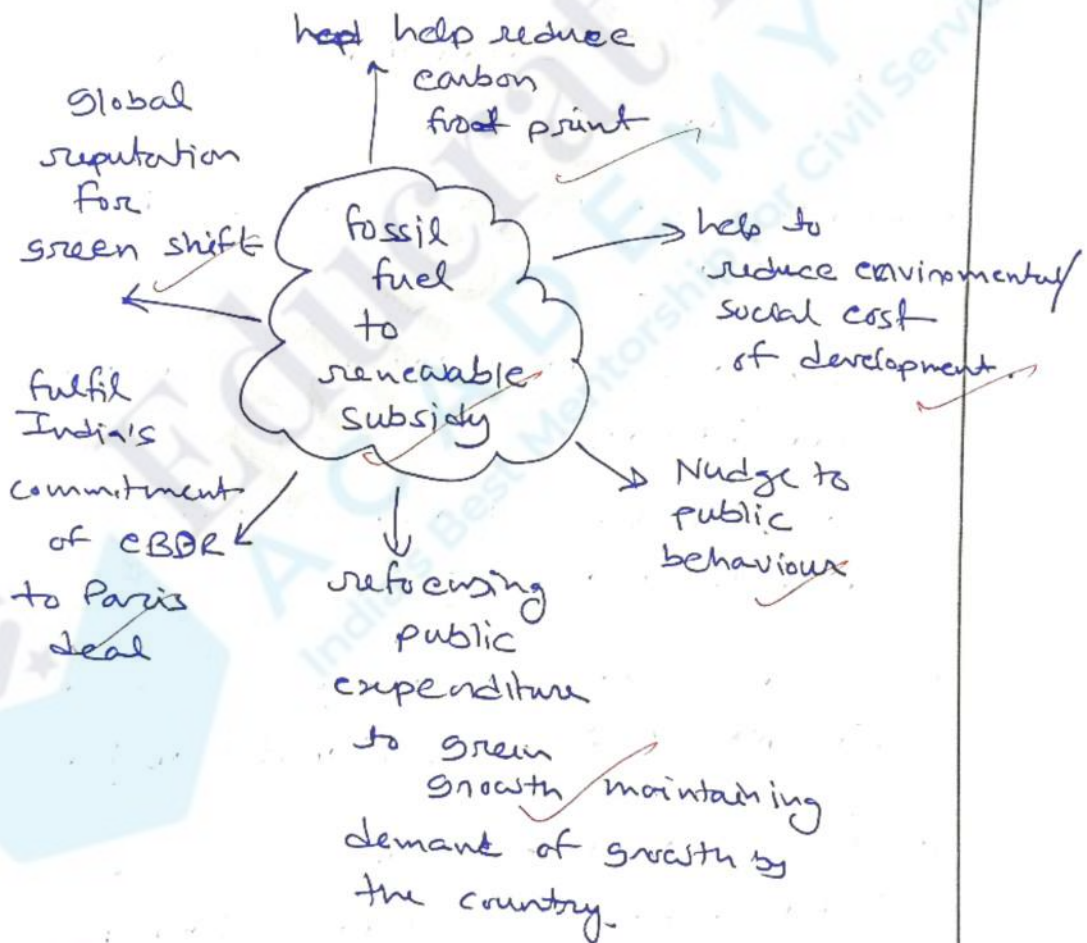 help reduce
carbon
foot print
Global
reputation
for
green shift
fossil
fuel
to
renewable
subsidy
help to
reduce enviromental/
social cost
of development.
Nudge to
public
behaviour
fulfil
India's
commitment
of CBDR
to Paris
deal
refocusing
public
expenditure
to green
growth maintaining
demand of growth by
the country.
Educrat
ACADEMY
India's Best Mentorship for Civil Servic